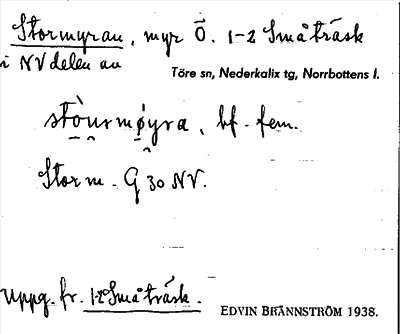 Stormyran, myr Ö. 1-2 Småträsk
i NV delen av
Töre sn, Nederkalix tg, Norrbottens l.
stòurmǿyra, bf. fem.
Storm. G 30 NV.
Uppg. fr. 1-2 Småträsk.
EDVIN BRÄNNSTRÖM 1938.